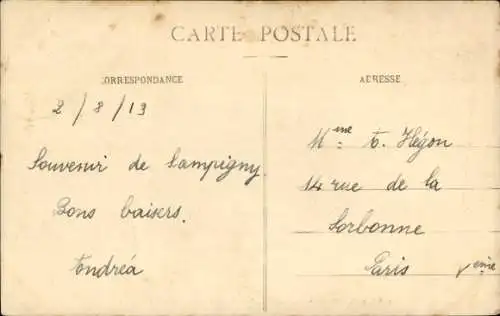 CARTE POSTALE
CORRESPONDANCE
ADRESSE
2/8/13
Souvenir de Sampigny.
Bons baisers.
Andréa
Mme T. Hégon
14 rue de la
Sorbonne
Paris Vème